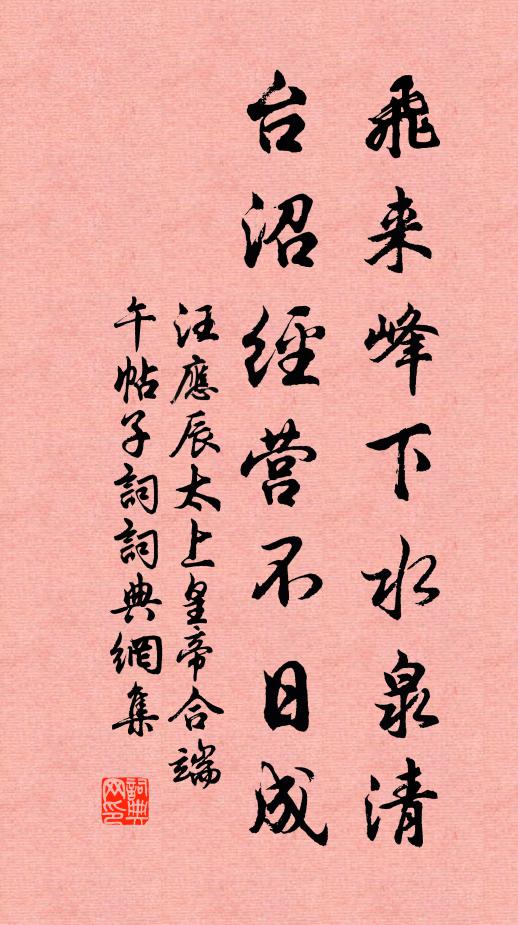 飛来峰下水泉清
台沼經营不日成
汪應辰太上皇帝合端
午帖子詞詞典網集
詞典网印